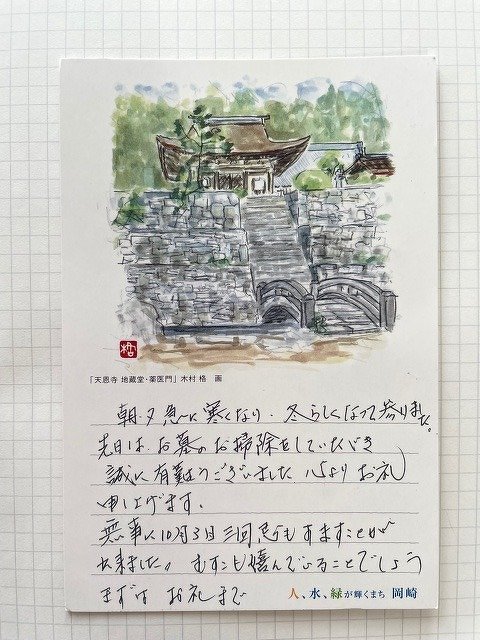 「天恩寺 地蔵堂・薬医門」 木村 格 画
朝夕急に寒くなり、冬らしくなって参りました。
先日は、お墓のお掃除をしていただき
誠に有難うございました。心よりお礼
申し上げます。
無事に10月3日三回忌もすますことが
出来ました。むすこも嬉んでいることでしょう
まずは お礼まで
人、水、緑が輝くまち 岡崎